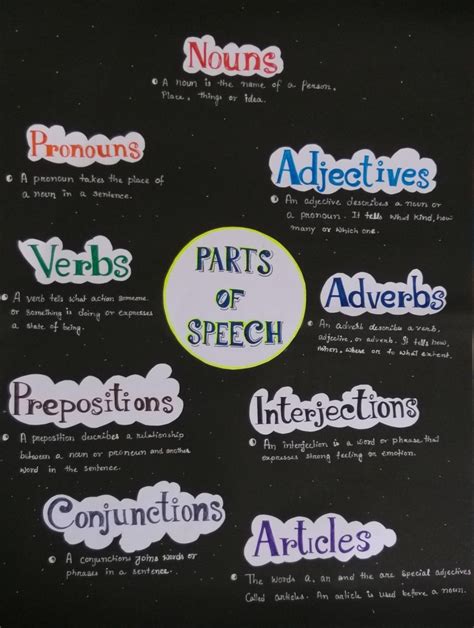 Nouns
A noun is the name of a Person,
Place, things or idea.
Pronouns
A pronoun takes the place of
a noun in a sentence.
Adjectives
An adjective describes a noun or
a pronoun. It tells what kind, how
many or which one.
Verbs
A verb tells what action someone
or something is doing or expresses
a state of being.
PARTS
OF
SPEECH
Adverbs
An adverb describes a verb,
adjective, or adverb. It tells how,
when, where or to what extent.
Prepositions
A preposition describes a relationship
between a noun or pronoun and another
word in the sentence.
Interjections
An interjection is a word or phrase that
expresses strong feeling or emotion.
Conjunctions
A conjunctions joins words or
phrases in a sentence.
Articles
The words a, an and the are special adjectives
Called articles. An article is used before a noun.